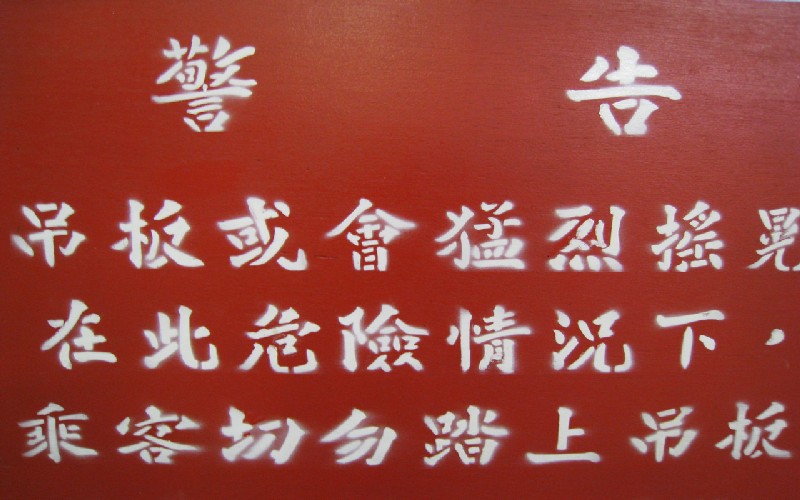 警告
吊板或會猛烈搖晃
在此危險情況下，
乘客切勿踏上吊板